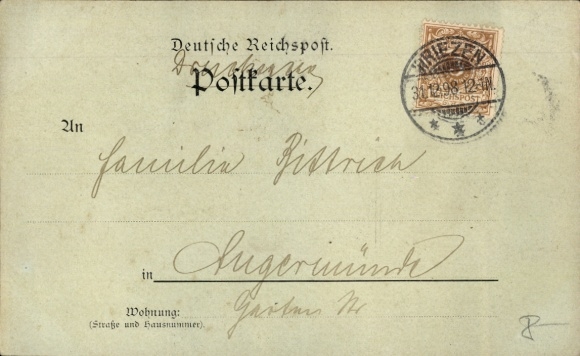 Deutsche Reichspost.
Drucksache
Postkarte.
WRIEZEN
31.12.98.12-1N.
REICHSPOST
An
Familie Bittrich
in Angermünde
Wohnung: Garten Str
(Straße und Hausnummer).